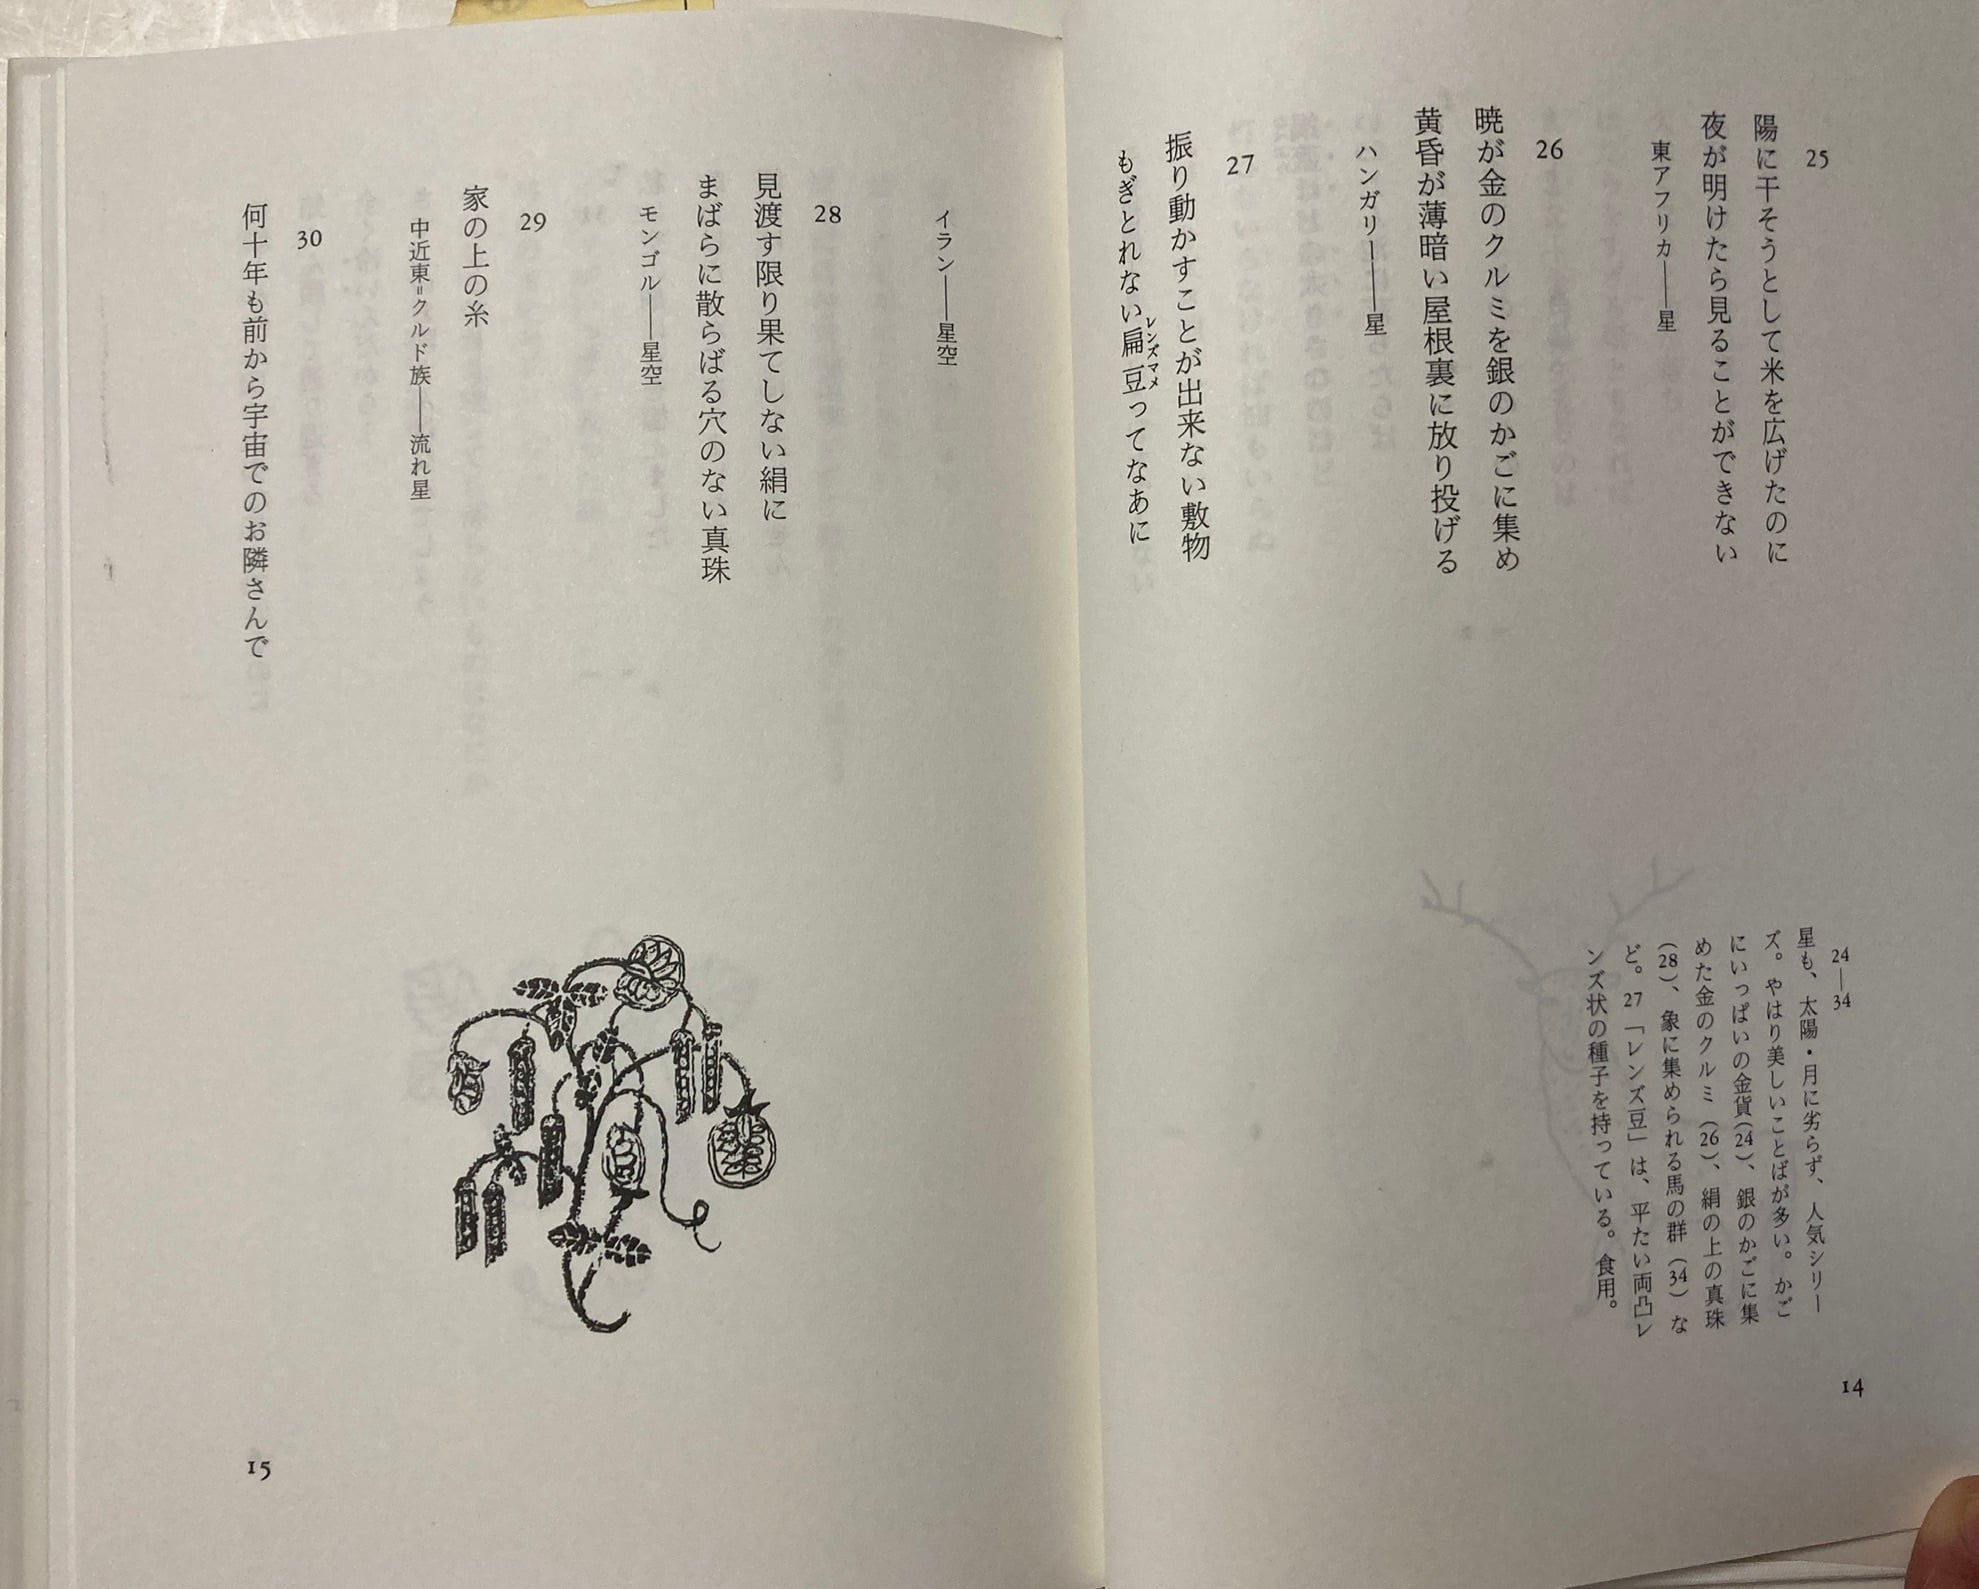 25
陽に干そうとして米を広げたのに
夜が明けたら見ることができない
東アフリカ――星
26
暁が金のクルミを銀のかごに集め
黄昏が薄暗い屋根裏に放り投げる
ハンガリー――星
27
振り動かすことが出来ない敷物
もぎとれない扁豆ってなあに
レンズマメ
24―34
星も、太陽・月に劣らず、人気シリー
ズ。やはり美しいことばが多い。かご
にいっぱいの金貨(24)、銀のかごに集
めた金のクルミ(26)、絹の上の真珠
(28)、象に集められる馬の群(34)な
ど。27「レンズ豆」は、平たい両凸レ
ンズ状の種子を持っている。食用。
14
イラン――星空
28
見渡す限り果てしない絹に
まばらに散らばる穴のない真珠
モンゴル――星空
29
家の上の糸
中近東=クルド族――流れ星
30
何十年も前から宇宙でのお隣さんで
15